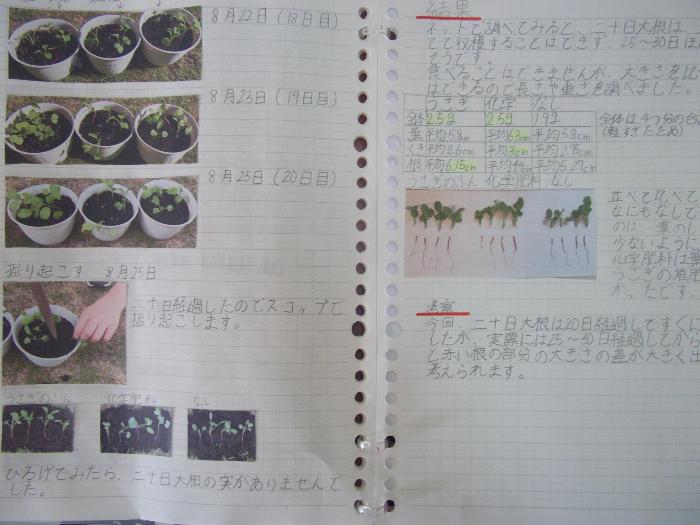 8月22日(18日目)
8月23日(19日目)
8月25日(20日目)
掘り起こす 8月25日
二十日経過したのでスコップで
掘り起こします。
うさぎのふん 化学肥料 なし
ひろげてみたら、二十日大根の実がありませんで
した。
結果
ネットで調べてみると、二十日大根は、
てて収穫することはできず、25〜30日ほ
そうです。
食べることはできませんが、大きさをは
はできるので長さや重さを調べました。
うさぎ 化学 なし
全体 2.5g 2.5g 1.9g
葉 平均5.8cm 平均6.3cm 平均5.8cm
くき 平均2.6cm 平均3cm 平均2.75cm
根 平均6.15cm 平均4cm 平均5.27cm
全体は4つ分の合
(軽すぎたため)
うさぎのふん 化学肥料 なし
並べて比べて
なにもなして
のは、葉のし
少ないように
化学肥料は葉
うさぎの堆肥
かったです。
考察
今回、二十日大根は20日経過してすぐに
したが、実際には25〜30日経過してから
と赤い根の部分の大きさの差が大きく出
考えられます。